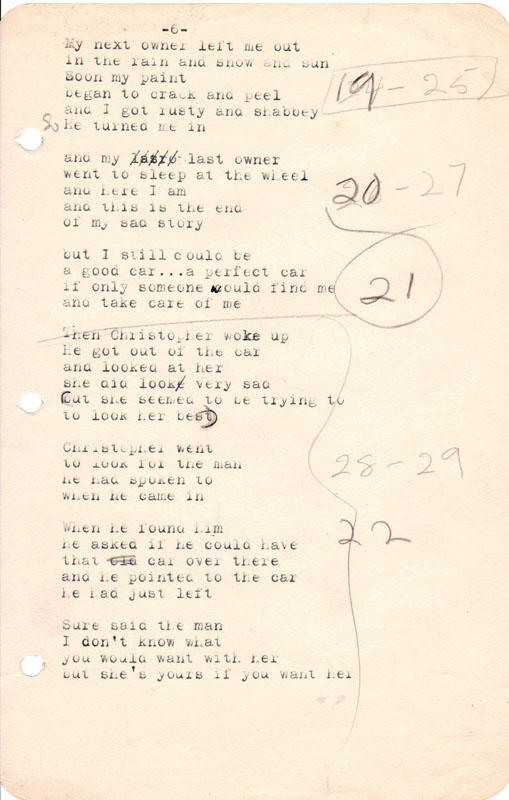 -6-
My next owner left me out
in the rain and snow and sun
Soon my paint
began to crack and peel
and I got rusty and shabbey
So He turned me in
19 - 25
and my last owner
went to sleep at the wheel
and here I am
and this is the end
of my sad story
20 - 27
but I still could be
a good car...a perfect car
if only someone would find me
and take care of me
21
Then Christopher woke up
He got out of the car
and looked at her
she did look very sad
(but she seemed to be trying to
to look her best)
Christopher went
to look for the man
he had spoken to
when he came in
28 - 29
When he found him
he asked if he could have
that old car over there
and he pointed to the car
he had just left
22
Sure said the man
I don't know what
you would want with her
but she's yours if you want her